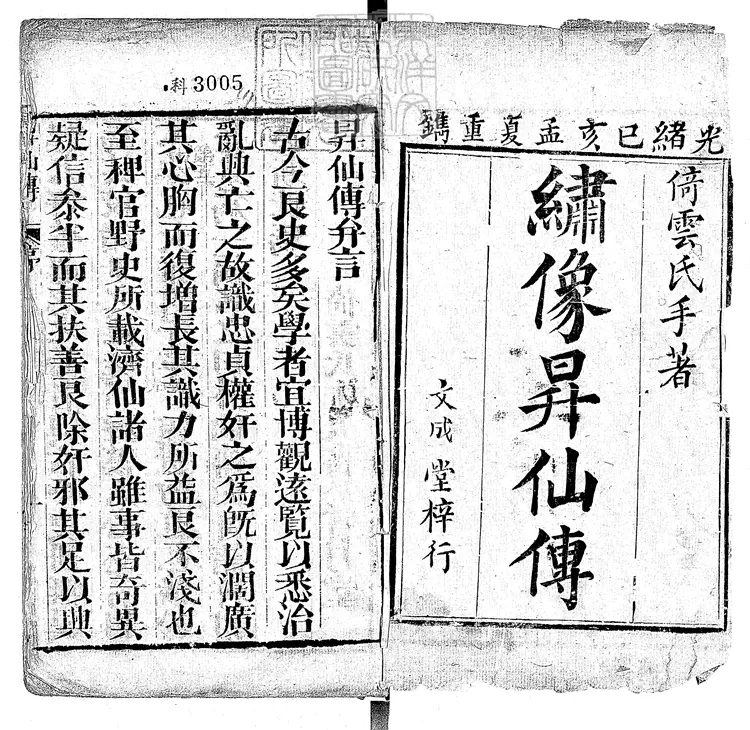 光緒已亥孟夏重鐫
倚雲氏手著
繡像昇仙傳
文成堂梓行
科 3005
昇仙傳弁言
古今良史多矣學者宜博觀遠覧以悉治
亂興亡之故識忠貞權奸之爲既以濶廣
其心胸而復增長其識力所益良不淺也
至稗官野史所載濟仙諸人雖事皆奇異
疑信叅半而其扶善良除奸邪其足以興
昇仙傳 序